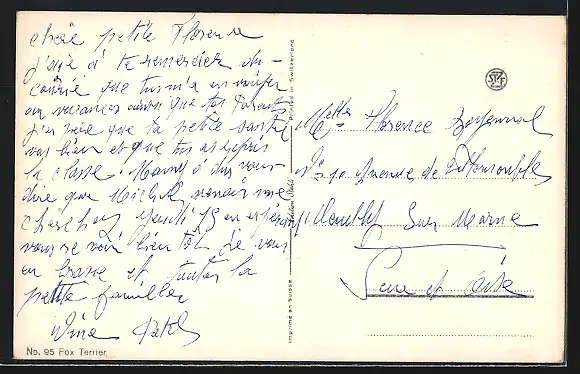 chère petite Florence
j'ai à te remercier du
que tu m'a envoyer
en vacances ainsi que tes Parents
j'espère que ta petite santé
vas bien et que tu as repris
la classe. Mamy à du vous
dire que Michel venait me
chercher jeudi 15 en espérant
vous revoir bientôt je vous
embrasse et toutes la
petite famille
No. 95 Fox Terrier
Printed in Switzerland
Imprimé en Suisse
Melle Florence
No 10 Avenue de
Neuilly Sur Marne
Seine et Oise